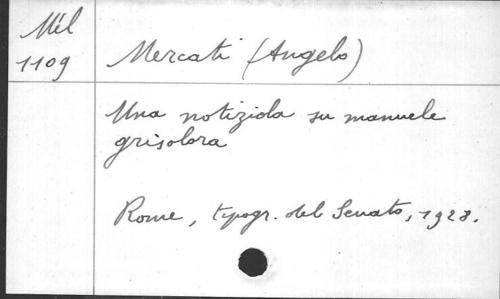 Mél
1109
Mercati (Angelo)
Una notiziola su manuele
grisolora
Rome, typogr. del Senato, 1928.